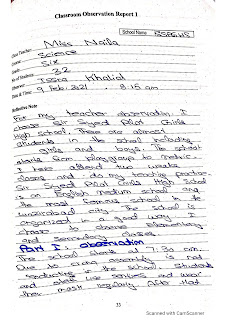 Classroom Observation Report 1
School Name: SSPGHS
Class Teacher: Miss Naila
Subject: Science
Class: Six
No of Students: 32
Observer: Isra Khalid
Date & Time: 9 Feb. 2021. 8:15 am
Reflective Note
For my teacher observation I
chose Sir Syed Pilot Girls
High School. There are almost
students in the school including
girls and boys. The school
starts from play group to metric.
I have attend two weeks
classes and do my teaching practice
Sir Syed Pilot Girls High School
is an English medium school and
the most famous school in the
city. The school is
organized in good way. I
chose to observe elementary
and secondary classes.
Part I: observation
The school start at 7:30 am.
Due to assembly is not
conducting in the school. Students
and also use and wear
their mask regularly. After that
33
Scanned with CamScanner